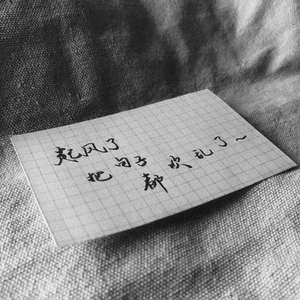 起风了
把句子
都吹乱了～